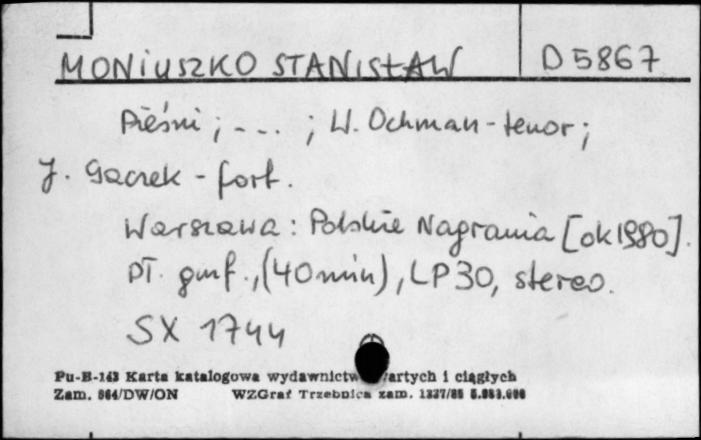 MONIUSZKO STANISŁAW D 5867
Pieśni ; - - - ; W. Ochman - tenor ;
J. Gaczek - fort.
Warszawa : Polskie Nagrania [ok 1980].
Pł. gmf., (40 min), LP 30, stereo.
SX 1744
Pu-B-143 Karta katalogowa wydawnictw zwartych i ciągłych
Zam. 864/DW/ON WZGraf Trzebnica zam. 1337/86